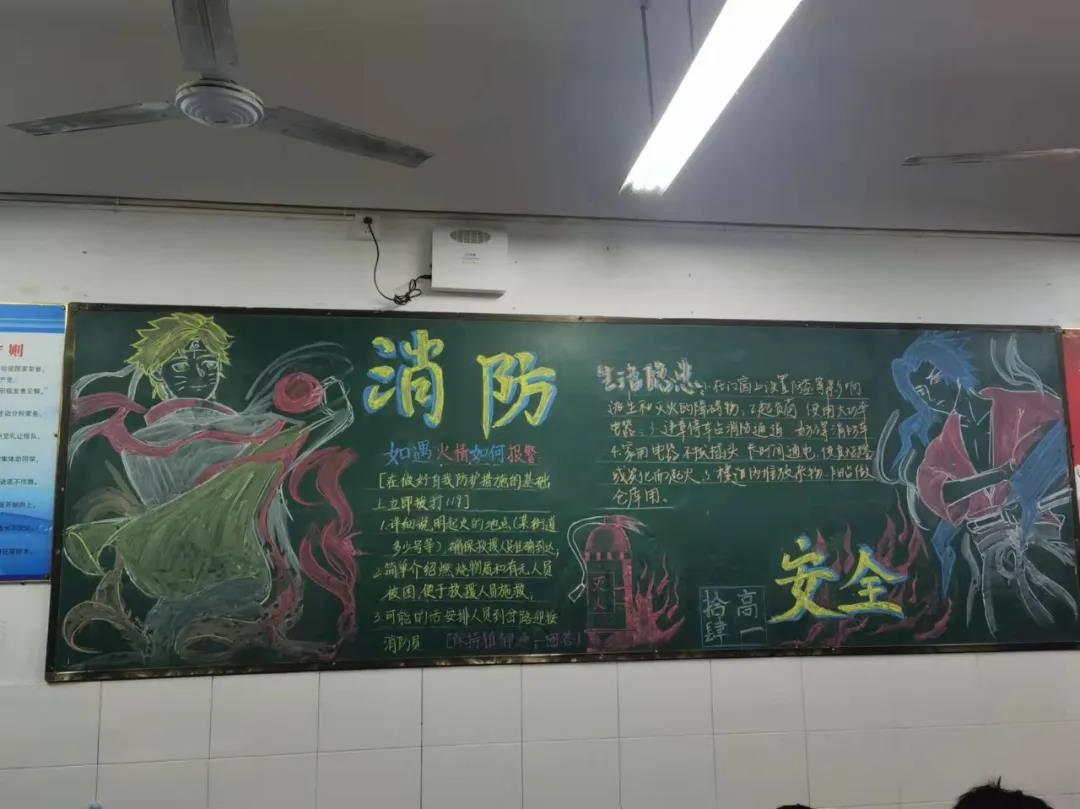 则
消防
如遇火情如何报警
[在做好自我防护措施的基础
上立即拨打119]
1.详细说明起火的地点(某街道
多少号等),确保救援人员准确到达;
2.简单介绍燃烧物质和有无人员
被困,便于救援人员施救;
3.可能的话安排人员到岔路迎接
消防员
生活隐患
逃生和灭火的障碍物,2.超负荷使用大功率
电器、3.违章停车占消防通道
4.家用电器不拔插头 长时间通电
或老化而起火、5.楼道内堆放杂物
仓库用。
灭火
高一
拾肆
安全